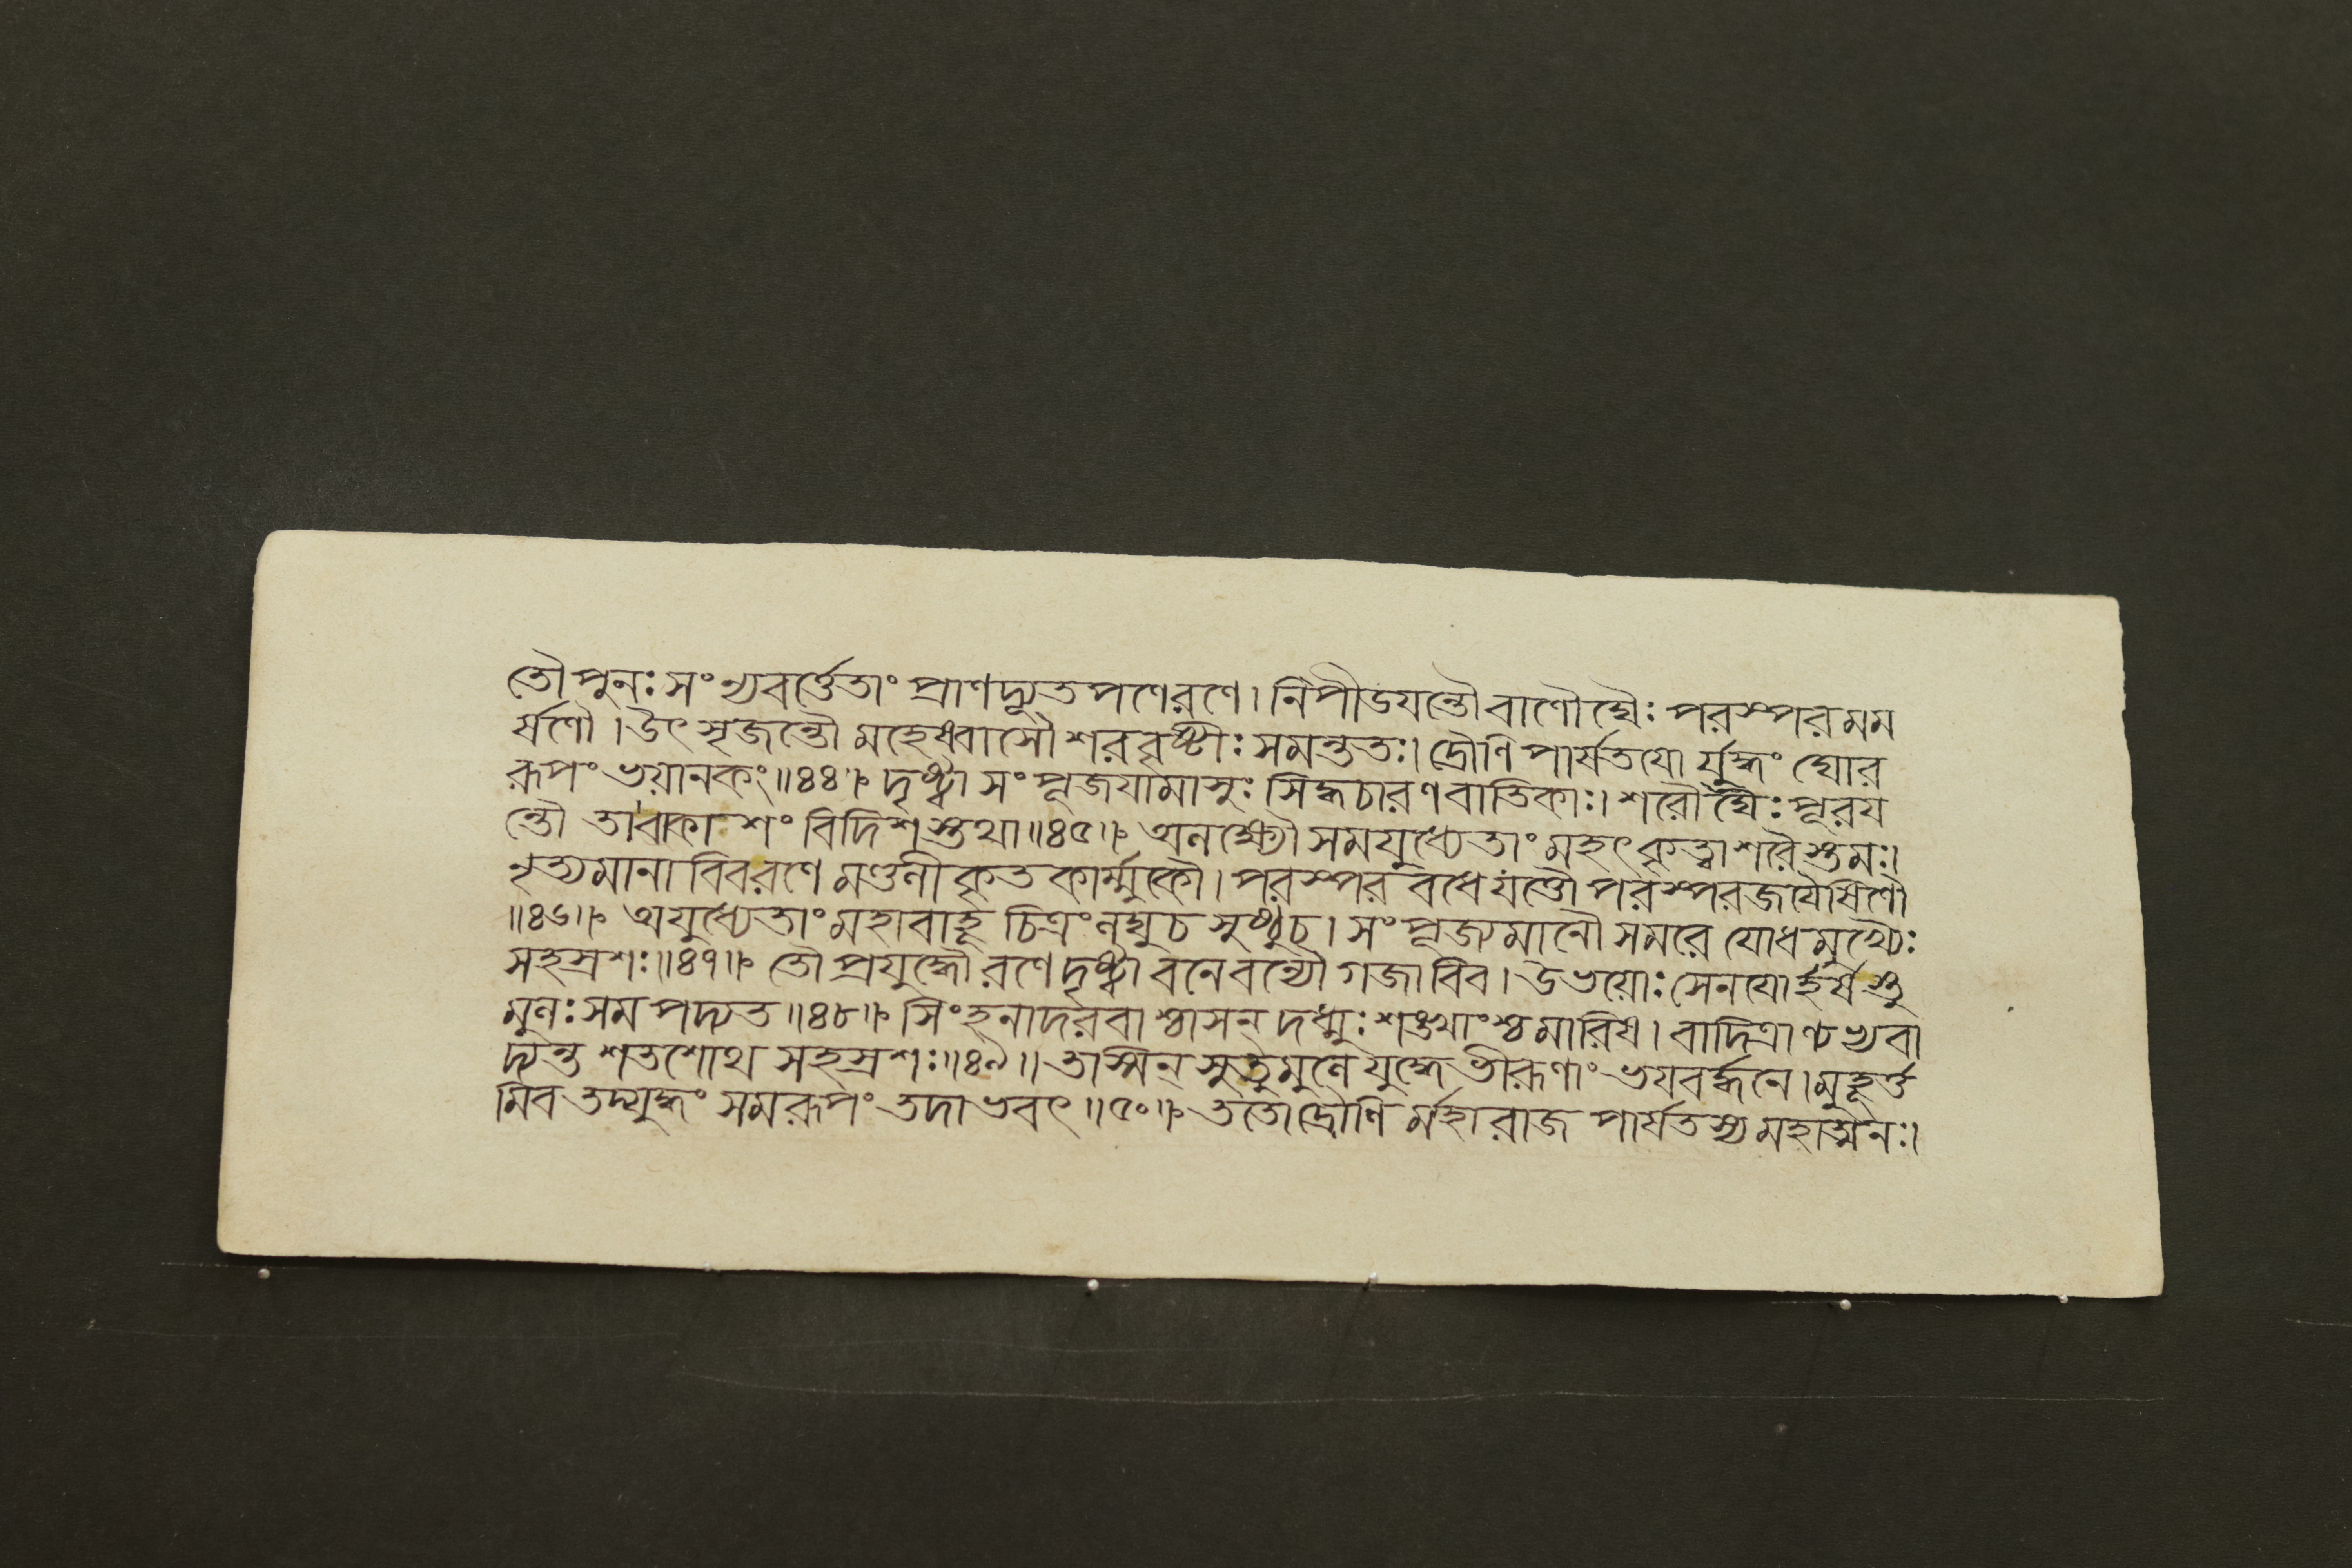 তৌ পুনঃ সংন্যবর্ত্তেতাং প্রাণদ্যূতপণেরণে। নিপীডযন্তৌ বাণৌঘৈঃ পরস্পরমম
র্ষণৌ। উৎসৃজন্তৌ মহেষ্বাসৌ শরবৃষ্টীঃ সমন্ততঃ। দ্রৌণিপার্ষতযো র্যুদ্ধং ঘোর
রূপং ভয়ানকং॥৪৪॥ দৃষ্ট্বা সংপূজযামাসুঃ সিদ্ধচারণবাতিকাঃ। শরৌঘৈঃ পূরয
ন্তৌ তাবাকাশং বিদিশস্তথা॥৪৫॥ অনক্ষ্যৌ সমযুধ্যেতাং মহৎকৃত্বা শরৈস্তমঃ।
নৃত্যমানাবিবরণে মণ্ডনীকৃতকার্ম্মুকৌ। পরস্পরবধেযত্তৌ পরস্পরজযৈষিণৌ
॥৪৬॥ অযুধ্যেতাং মহাবাহূ চিত্রং নঘুচ সুষ্ঠুচ। সংপূজ্যমানৌ সমরে যোধমুখ্যৈঃ
সহস্রশঃ॥৪৭॥ তৌ প্রযুদ্ধৌ রণে দৃষ্ট্বা বনে বন্যৌ গজাবিব। উভয়োঃ সেনযোর্হর্ষস্তু
মুনঃ সমপদ্যত॥৪৮॥ সিংহনাদরবাশ্চাসন্ দধ্মুঃ শঙ্খাংশ্চমারিষ। বাদিত্রাণ্যভ্যবা
দ্যন্ত শতশোথ সহস্রশঃ॥৪৯॥ তস্মিন্ সুতুমুনে যুদ্ধে ভীরূণাং ভযবর্দ্ধনে। মুহূর্ত্ত
মিব তদ্যুদ্ধং সমরূপং তদাভবৎ॥৫০॥ ততো দ্রৌণি র্মহারাজ পার্ষতস্য মহাত্মনঃ।